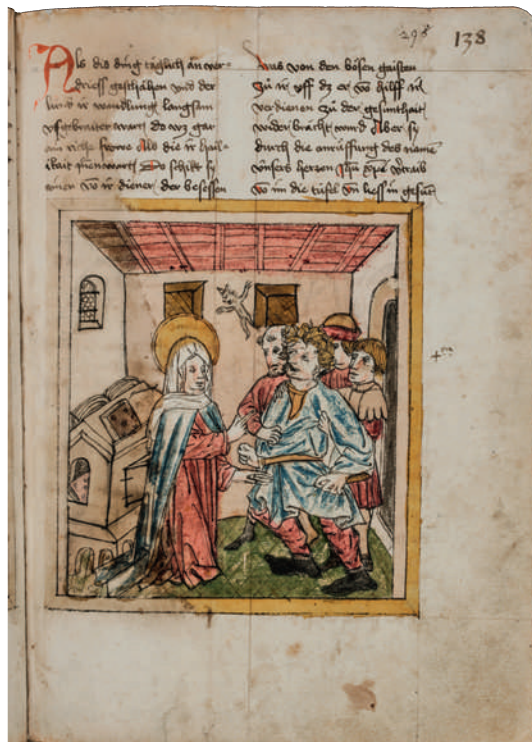 298
138
Als die ding täglich ân ver-
driess geschähen vnd der
lüms ir wandlung langsam
vsgebraitet wart do wz gar
ain riche frowe Als die ir hail-
ikait
Do schikt sy
ainer vō ir diener der besessen
was von den bösen gaisten
zů ir vff dz er vō hilff irs
verdienen zů der gesunthait
wider bracht wurd Aber sy
durch die anrüffung des namē
vnsers herren Jhū xpē v'traib
vō im die tüfel vn̄ liess in gesūt